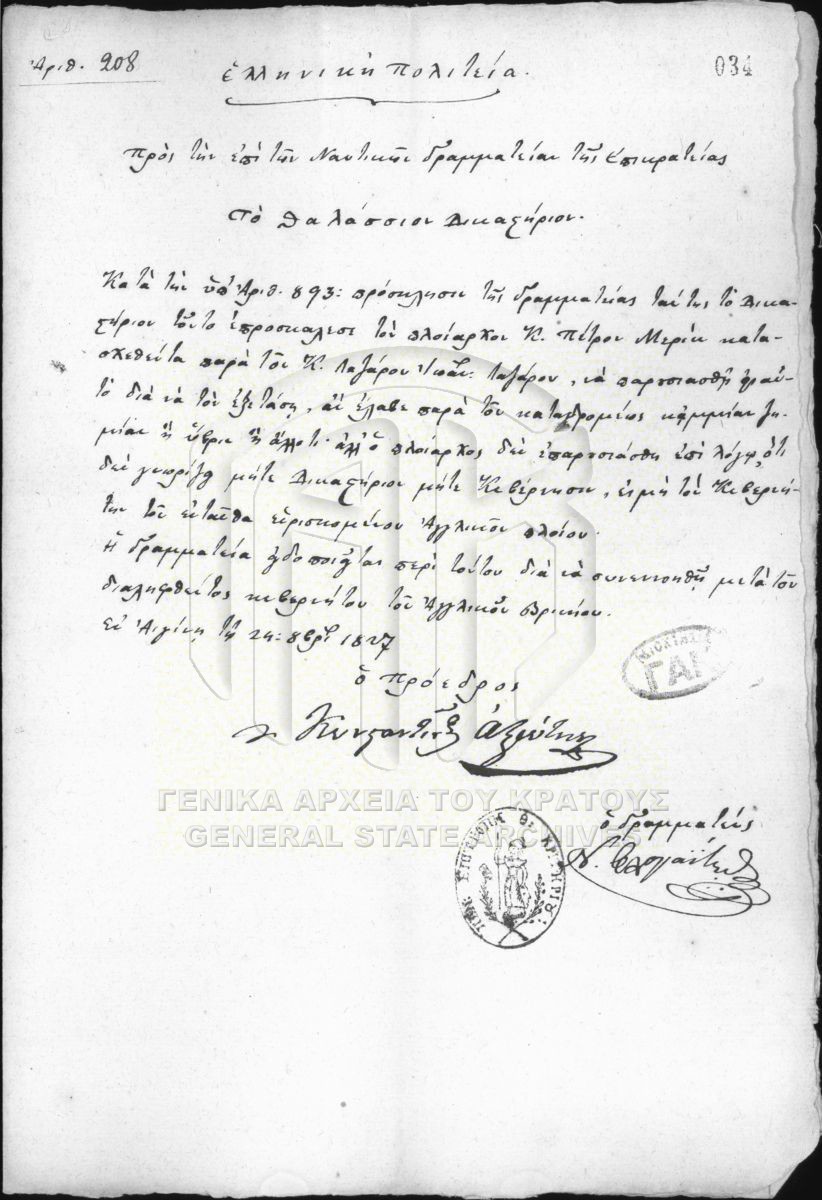 Ἀριθ. 208
034
Ἑλληνικὴ Πολιτεία.
Πρὸς τὴν ἐπὶ τῶν Ναυτικῶν Γραμματείαν τῆς Ἐπικρατείας
Τὸ Θαλάσσιον Δικαστήριον.
Κατὰ τὴν ὑπ' Ἀριθ. 893: πρόσκλησιν τῆς Γραμματείας ταύτης τὸ Δικα-
στήριον τοῦτο ἐπροσκάλεσε τὸν πλοίαρχον Κ. Πέτρον Μερὶκ κατα-
σχεθέντα παρὰ τοῦ Κ. Λαζάρου Λαζάρου, νὰ παρουσιασθῇ ἐναύ-
τὸ διὰ νὰ τὸν ἐξετάσῃ, ἂν ἔλαβε παρὰ τοῦ καταδρομέως κἀμμίαν ζη-
μίαν ἢ ὕβριν ἢ ἄλλοτι· ἀλλ' ὁ πλοίαρχος δὲν ἐπαρουσιάσθη ἐπὶ λόγῳ, ὅτι
δὲν γνωρίζει μήτε Δικαστήριον μήτε Κυβέρνησιν, εἰμὴ τὸν Κυβερνή-
την τοῦ ἐνταῦθα εὑρισκομένου Ἀγγλικοῦ πλοίου.
Ἡ Γραμματεία εἰδοποιεῖται περὶ τούτου διὰ νὰ συνεννοηθῇ μετὰ τοῦ
διαληφθέντος κυβερνήτου τοῦ Ἀγγλικοῦ Βρικίου.
Ἐν Αἰγίνῃ τῇ 24: 8βρίου 1827
ὁ Πρόεδρος
Κωνσταντῖνος Ἀξιώτης
ΓΑΚ
ΓΕΝΙΚΑ ΑΡΧΕΙΑ ΤΟΥ ΚΡΑΤΟΥΣ
GENERAL STATE ARCHIVES
ὁ Γραμματεὺς